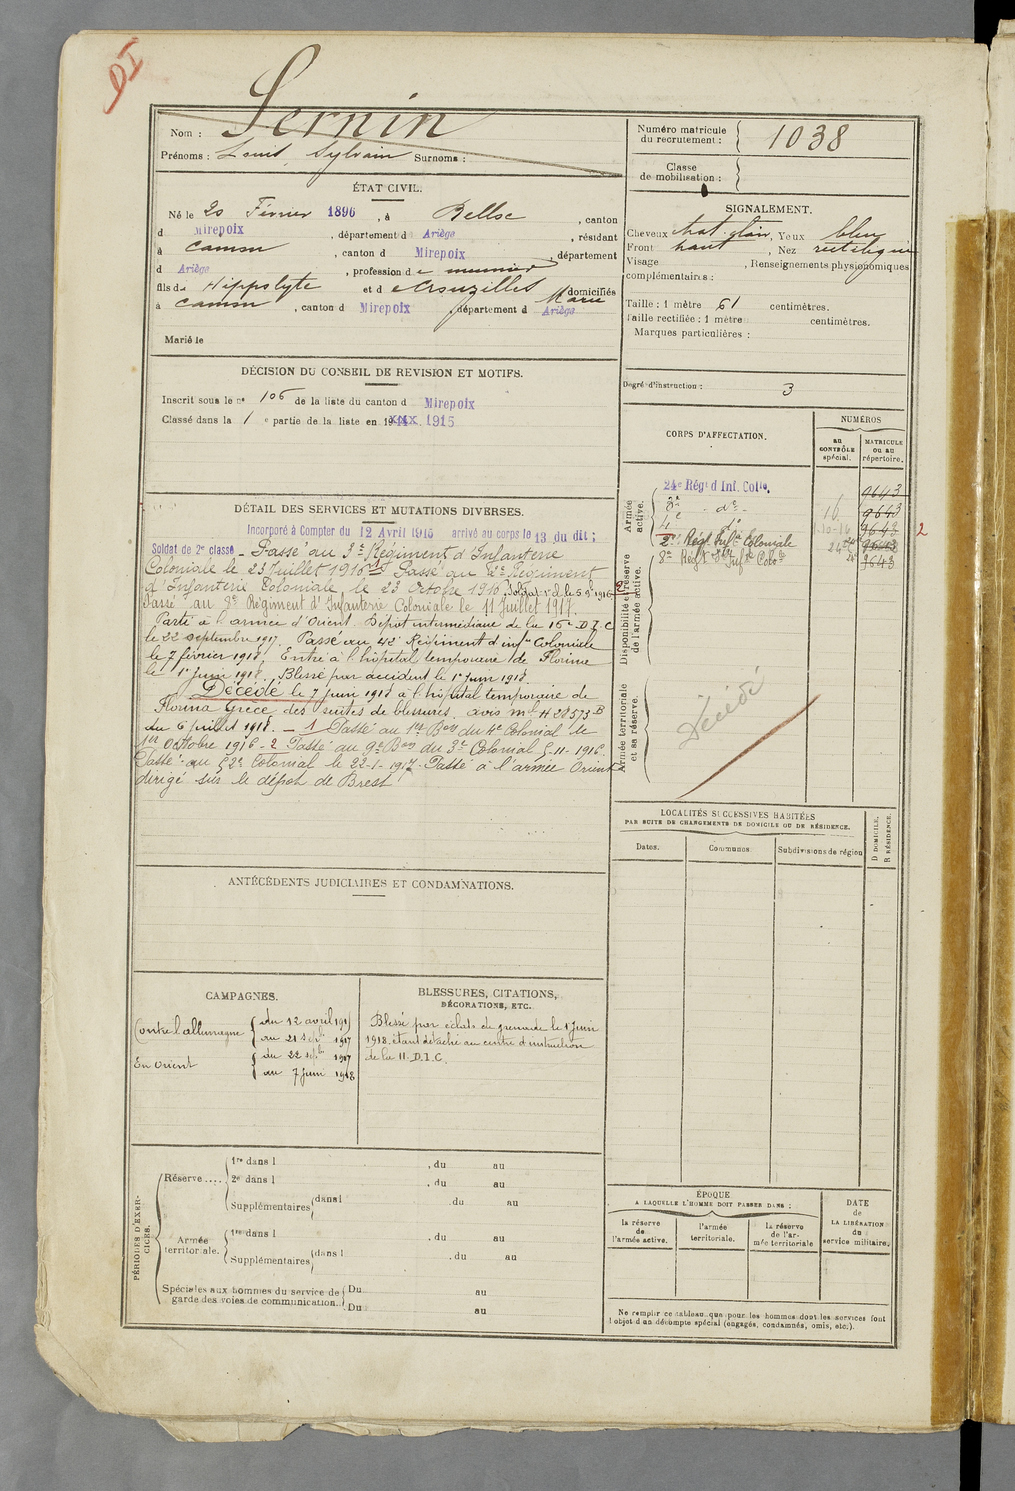 DI
Nom : Sernin
Prénoms : Louis, Sylvain Surnoms :
Numéro matricule du recrutement : 1038
Classe de mobilisation :
ÉTAT CIVIL.
Né le 20 Février 1896, à Belloc, canton
d Mirepoix, département d Ariège, résidant
à Camon, canton d Mirepoix, département
d Ariège, profession de meunier
fils de Hippolyte et de Crouzilles Marie domiciliés
à Camon, canton d Mirepoix, département d Ariège
Marié le
SIGNALEMENT.
Cheveux chat. clair, Yeux bleu
Front haut, Nez rectiligne
Visage , Renseignements physionomiques
complémentaires :
Taille : 1 mètre 61 centimètres.
Taille rectifiée : 1 mètre centimètres.
Marques particulières :
Degré d'instruction : 3
DÉCISION DU CONSEIL DE REVISION ET MOTIFS.
Inscrit sous le n° 106 de la liste du canton d Mirepoix
Classé dans la 1 e partie de la liste en 19 1915
CORPS D'AFFECTATION.
NUMÉROS
au CONTRÔLE spécial.
MATRICULE ou au répertoire.
Armée active.
24e Régt d'Inf. Colle. 9643
3e - do - 16 9643
4e do 1-10-16 9643
2 Régt Infie Coloniale 24 9643
8e Régt d'Infie Colole 9643
2
Disponibilité et réserve de l'armée active.
Armée territoriale et sa réserve.
Décédé
DÉTAIL DES SERVICES ET MUTATIONS DIVERSES.
Incorporé à Compter du 12 Avril 1915 arrivé au corps le 13 du dit ;
Soldat de 2e classe - Passé au 3e Régiment d'Infanterie
Coloniale le 23 Juillet 1916 1 Passé au 42e Régiment
d'Infanterie Coloniale le 23 Octobre 1916. Soldat 1e cl. le 5.9e 1916 2
Passé au 8e Régiment d'Infanterie Coloniale le 11 Juillet 1917.
Parti à l'armée d'Orient. Dépot intermédiaire de la 16e D.I.C
le 22 septembre 1917. Passé au 42e Régiment d'infie Coloniale
le 7 février 1918. Entré à l'hôpital temporaire de Florina
le 1er Juin 1918. Blessé par accident le 1er Juin 1918.
Décédé le 7 Juin 1918 à l'hôpital temporaire de
Florina Grèce des suites de blessures. avis ml H 28573 B
du 6 juillet 1918. - 1 Passé au 1er Bon du 4e Colonial le
1er Octobre 1916 - 2 Passé au 9e Bon du 3e Colonial 5-11-1916.
Passé au 52e Colonial le 22-1-1917. Passé à l'armée Orient
dirigé sur le dépot de Brest
LOCALITÉS SUCCESSIVES HABITÉES
PAR SUITE DE CHANGEMENTS DE DOMICILE OU DE RÉSIDENCE.
Dates. Communes. Subdivisions de région
D DOMICILE. R RÉSIDENCE.
ANTÉCÉDENTS JUDICIAIRES ET CONDAMNATIONS.
CAMPAGNES.
Contre l'allemagne { du 12 avril 1915
au 21 septbre 1917
En Orient { du 22 septbre 1917
au 7 Juin 1918
BLESSURES, CITATIONS,
DÉCORATIONS, ETC.
Blessé par éclats de grenade le 1 Juin
1918. étant détaché au centre d'instruction
de la 11. D.I.C.
PÉRIODES D'EXERCICES.
Réserve .... 1re dans l , du au
2e dans l , du au
Supplémentaires dans l .du au
Armée territoriale. 1re dans l . du au
Supplémentaires dans l . du au
Spéciales aux hommes du service de garde des voies de communication. Du au
Du au
ÉPOQUE
A LAQUELLE L'HOMME DOIT PASSER DANS :
la réserve de l'armée active.
l'armée territoriale.
la réserve de l'armée territoriale
DATE de LA LIBÉRATION du service militaire.
Ne remplir ce tableau que pour les hommes dont les services font
l'objet d'un décompte spécial (engagés, condamnés, omis, etc.).